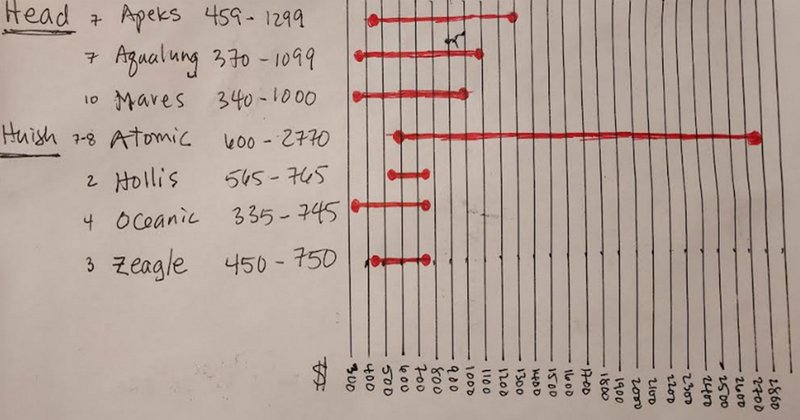 Head 7 Apeks 459-1299
7 Aqualung 370-1099
10 Mares 340-1000
Huish 7-8 Atomic 600-2770
2 Hollis 565-765
4 Oceanic 335-745
3 Zeagle 450-750
$ 300 400 500 600 700 800 900 1000 1100 1200 1300 1400 1500 1600 1700 1800 1900 2000 2100 2200 2300 2400 2500 2600 2700 2800